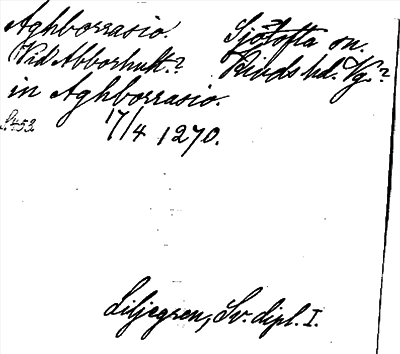 Aghborrasio. Sjötofta sn.
Vid Abborhult? Kinds hd. Vg.?
in Aghborrasio.
s. 453 17/4 1270.
Liljegren, Sv. dipl. I.